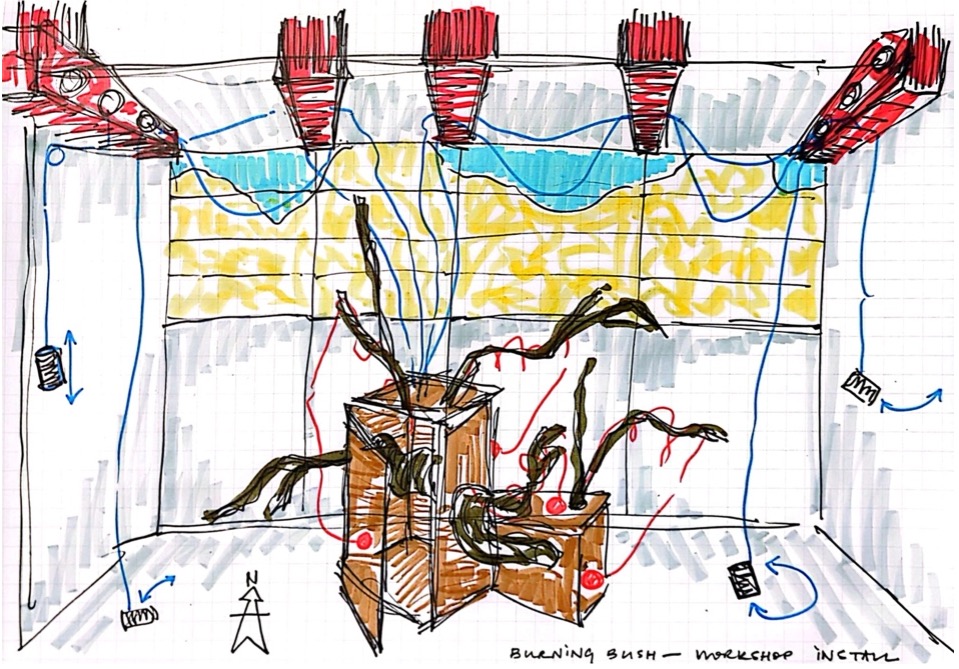 N
BURNING BUSH — WORKSHOP INSTALL